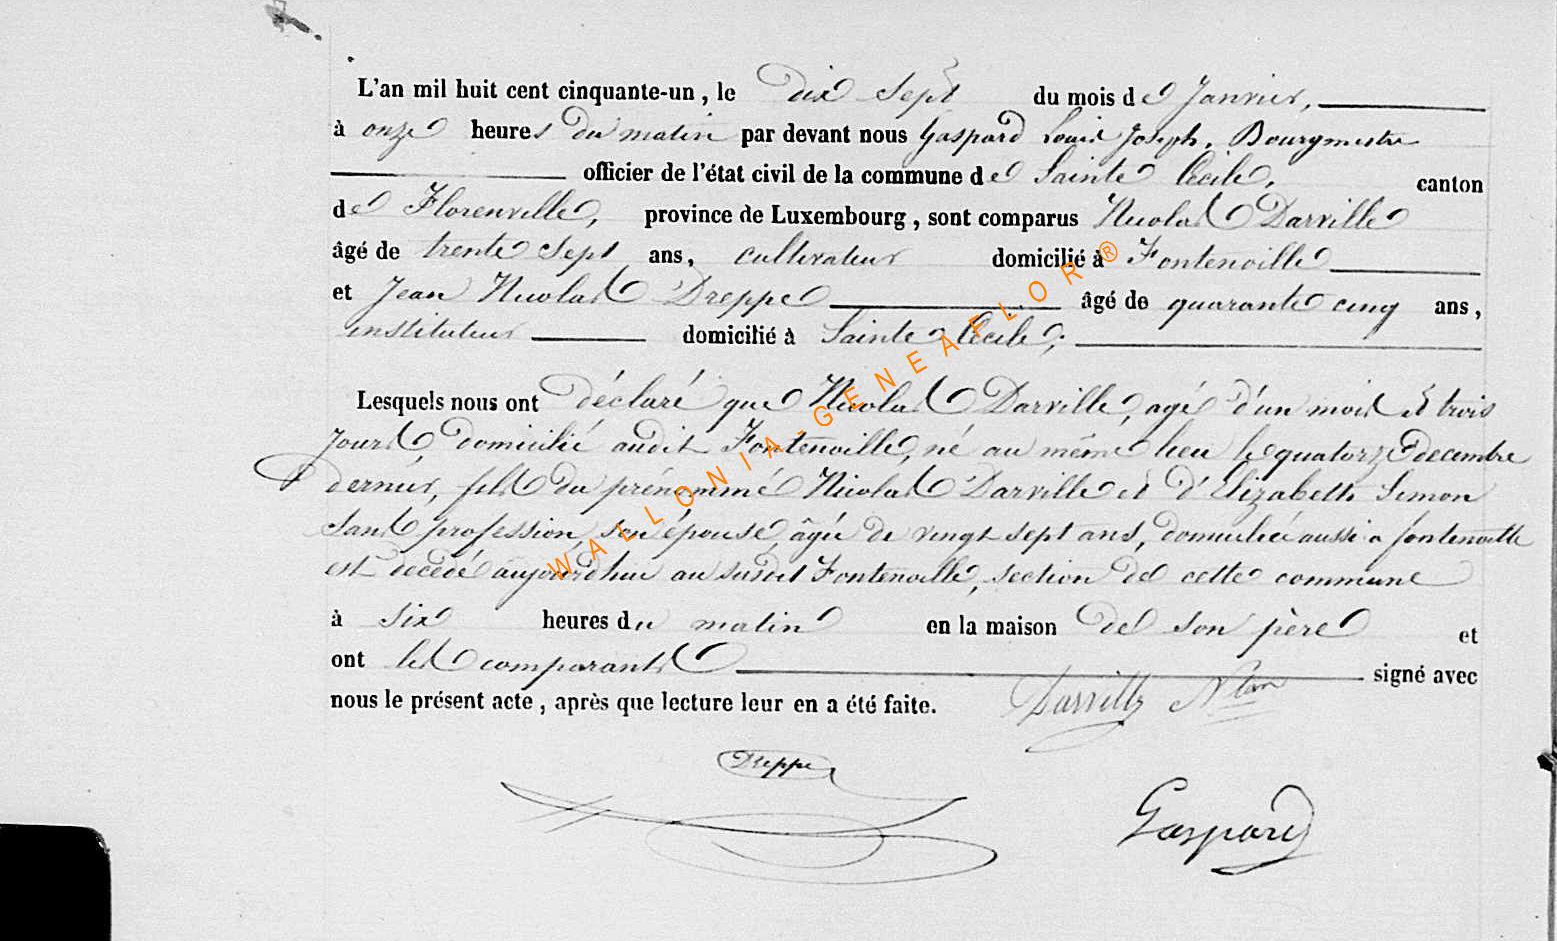 L'an mil huit cent cinquante-un, le dix sept du mois de Janvier,
à onze heures du matin par devant nous Gaspard Louis Joseph, Bourgmestre
officier de l'état civil de la commune de Sainte Cécile, canton
de Florenville, province de Luxembourg, sont comparus Nicolas Darville
âgé de trente sept ans, cultivateur domicilié à Fontenoille
et Jean Nicolas Dreppe âgé de quarante cinq ans,
instituteur domicilié à Sainte Cécile;
Lesquels nous ont déclaré que Nicolas Darville, agé d'un mois et trois
jours, domicilié audit Fontenoille, né au même lieu le quatorze decembre
dernier, fils du prénommé Nicolas Darville et d'Elizabeth Simon
sans profession, son épouse, âgée de vingt sept ans, domiciliée aussi à fontenoille
est décédé aujourdhui au susdit Fontenoille, section de cette commune
à six heures du matin en la maison de son père et
ont les comparants signé avec
nous le présent acte, après que lecture leur en a été faite. Darville Nlas
Dreppe
Gaspard
WALLONIA-GENEAFLOR®